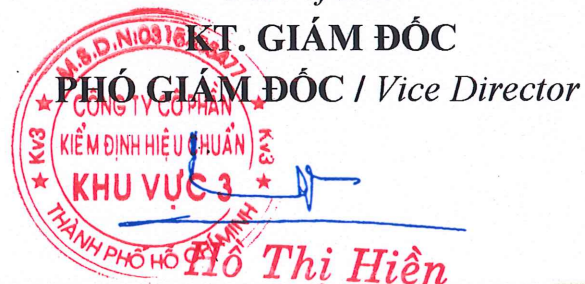 KT. GIÁM ĐỐC
PHÓ GIÁM ĐỐC / Vice Director
CÔNG TY CỔ PHẦN
KIỂM ĐỊNH HIỆU CHUẨN
KHU VỰC 3
KV3
KV3
THÀNH PHỐ HỒ CHÍ MINH
Hồ Thi Hiền